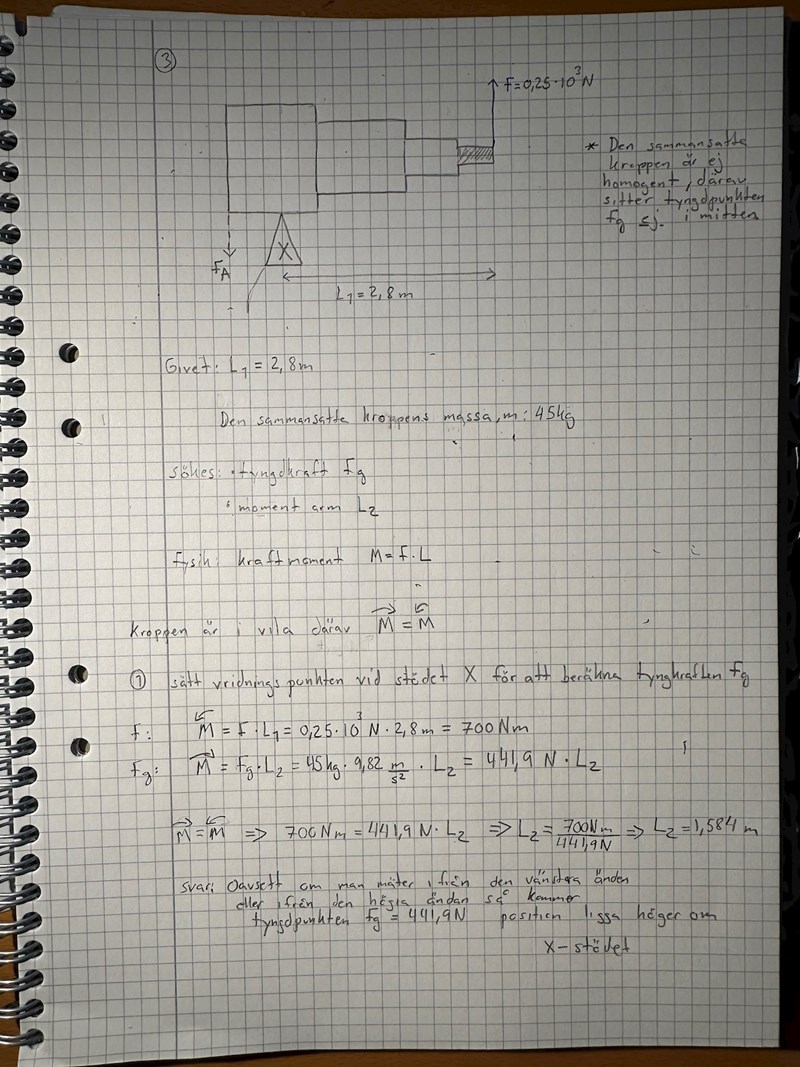 ③
F = 0,25·10³ N
* Den sammansatta
kroppen är ej
homogent, därav
sitter tyngdpunkten
Fg ej. i mitten
FA
X
L₁ = 2,8 m
Givet: L₁ = 2,8m
Den sammansatta kroppens massa, m: 45kg
Sökes: · tyngdkraft Fg
· moment arm L₂
Fysik: kraftmoment M = F · L
Kroppen är i vila därav M→ = M←
① sätt vridningspunkten vid stödet X för att beräkna tyngkraften Fg
F: M← = F · L₁ = 0,25·10³ N · 2,8 m = 700 Nm
Fg: M→ = Fg · L₂ = 45 kg · 9,82 m/s² · L₂ = 441,9 N · L₂
M→ = M← => 700 Nm = 441,9 N · L₂ => L₂ = 700Nm/441,9N => L₂ = 1,584 m
svar: Oavsett om man mäter ifrån den vänstra änden
eller ifrån den högra ändan så kommer
tyngdpunkten Fg = 441,9 N position ligga höger om
X-stödet